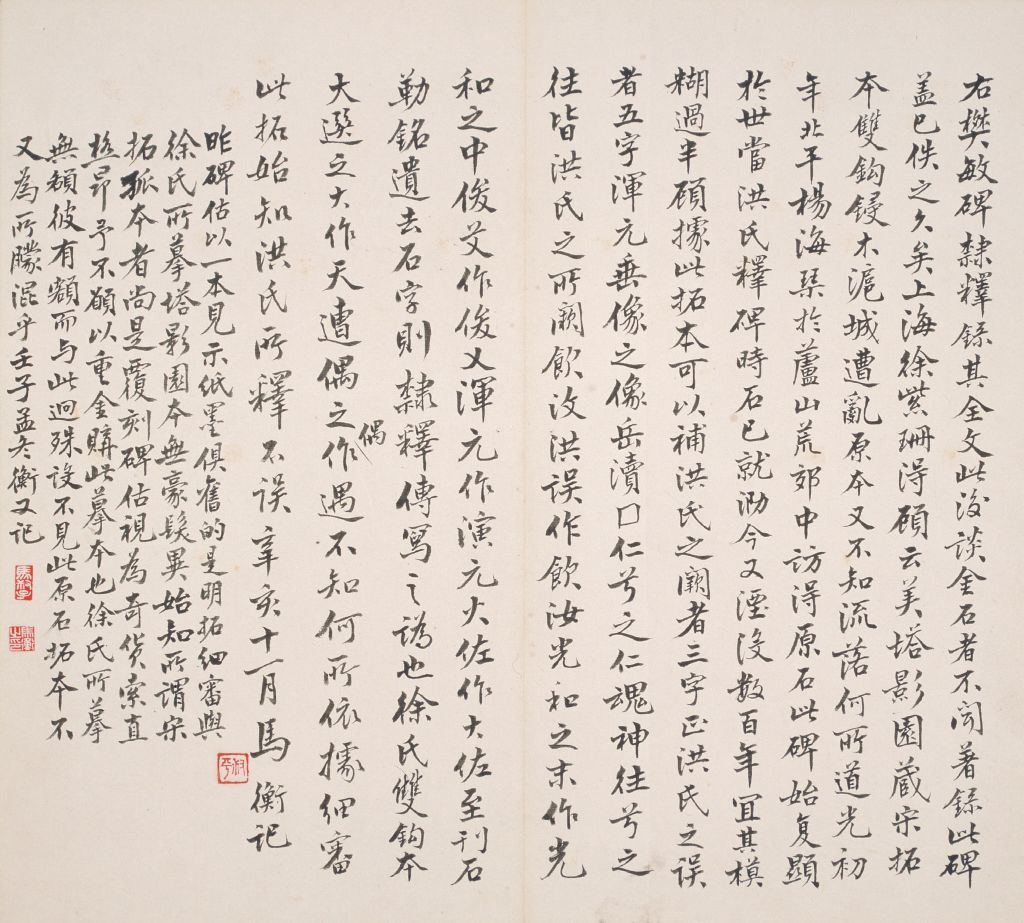 右樊敏碑隸釋錄其全文此後談金石者不聞著錄此碑
蓋已佚之久矣上海徐紫珊得顧云美塔影園藏宋拓
本雙鈎鋟木滬城遭亂原本又不知流落何所道光初
年北平楊海琹於蘆山荒郊中訪得原石此碑始复顯
於世當洪氏釋碑時石已就泐今又湮没數百年宜其模
糊過半顧據此拓本可以補洪氏之闕者三字正洪氏之誤
者五字渾元垂像之像岳瀆口仁兮之仁魂神往兮之
往皆洪氏之所闕飲汶洪誤作飲汝光和之末作光
和之中俊艾作俊乂渾元作演元大佐作大佐至刊石
勒銘遺去石字則隸釋傳寫之譌也徐氏雙鈎本
大選之大作天遭偶之偶作遇不知何所依據細審
此拓始知洪氏所釋不誤辛亥十一月馬衡記
昨碑估以一本見示紙墨俱舊的是明拓細審與
徐氏所摹塔影園本無豪髮異始知所謂宋
拓孤本者尚是覆刻碑估視為奇貨索直
極昂予不願以重金購此摹本也徐氏所摹
無額彼有額而与此迥殊設不見此原石拓本不
又為所朦混乎壬子孟冬衡又記